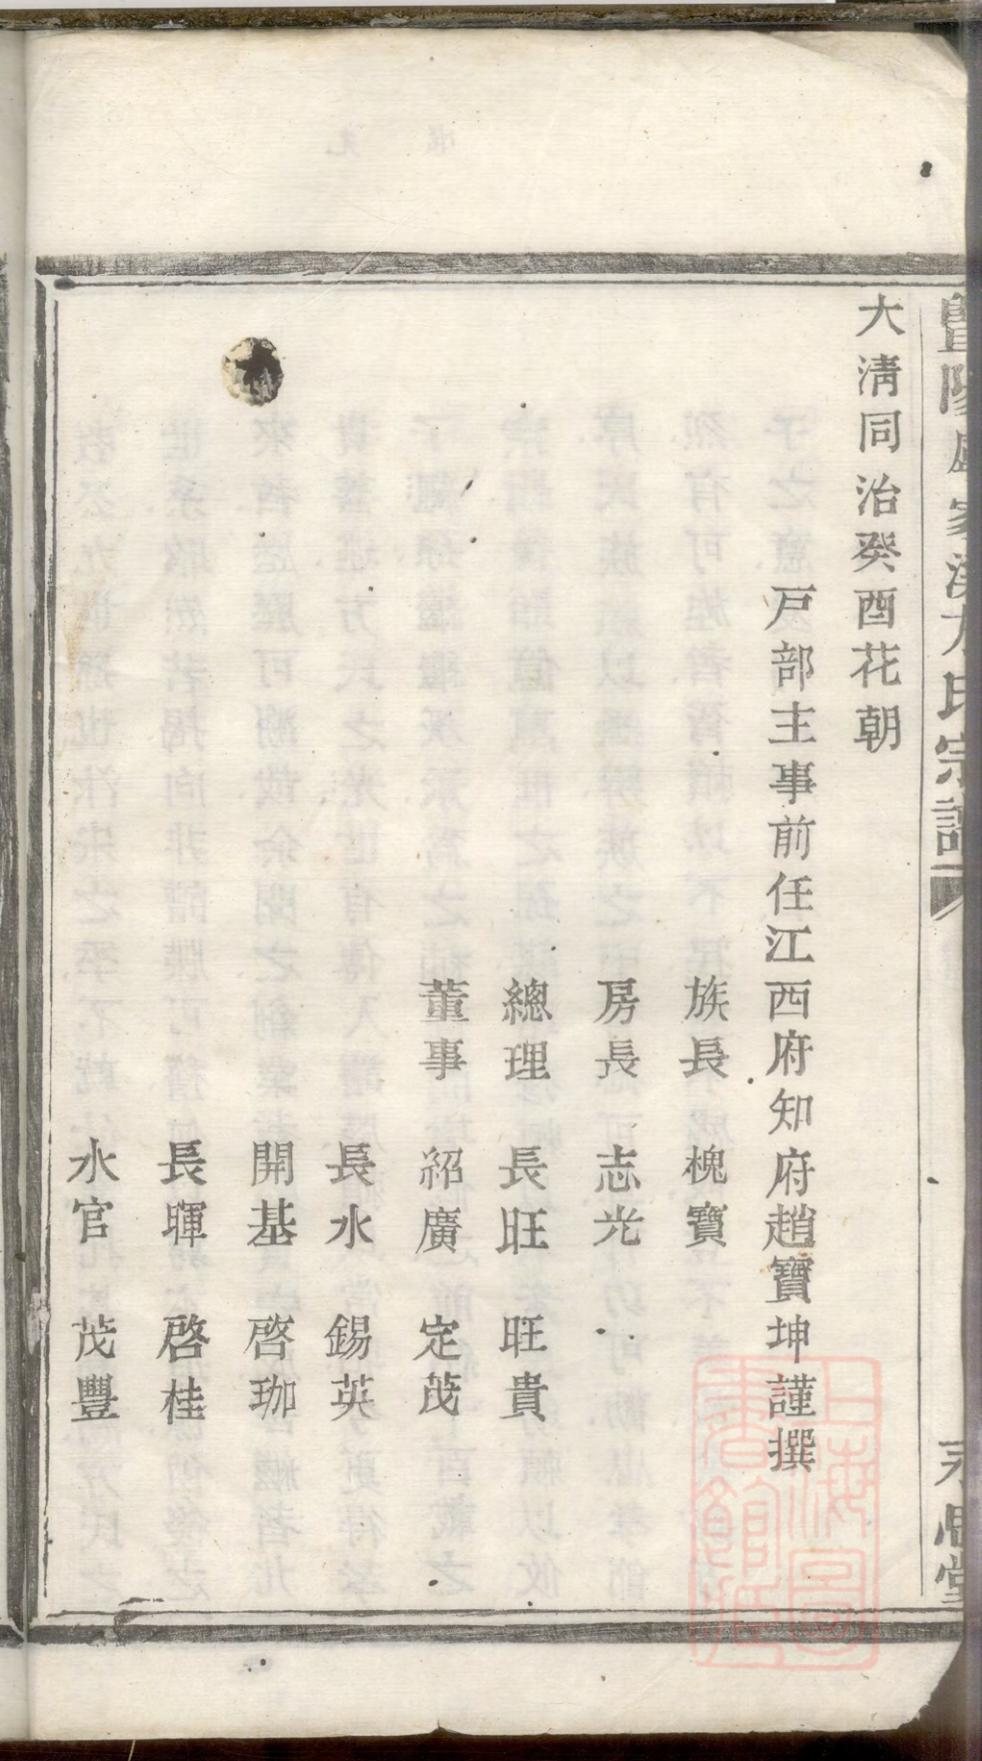 大清同治癸酉花朝
戶部主事前任江西府知府趙寶坤謹撰
族長 槐寶
房長 志光
總理 長旺 旺貴
董事 紹廣 定茂
長水 錫英
開基 啓珈
長暉 啓桂
水官 茂豐
暨陽 家 方氏宗譜
永思堂
上海圖書館藏